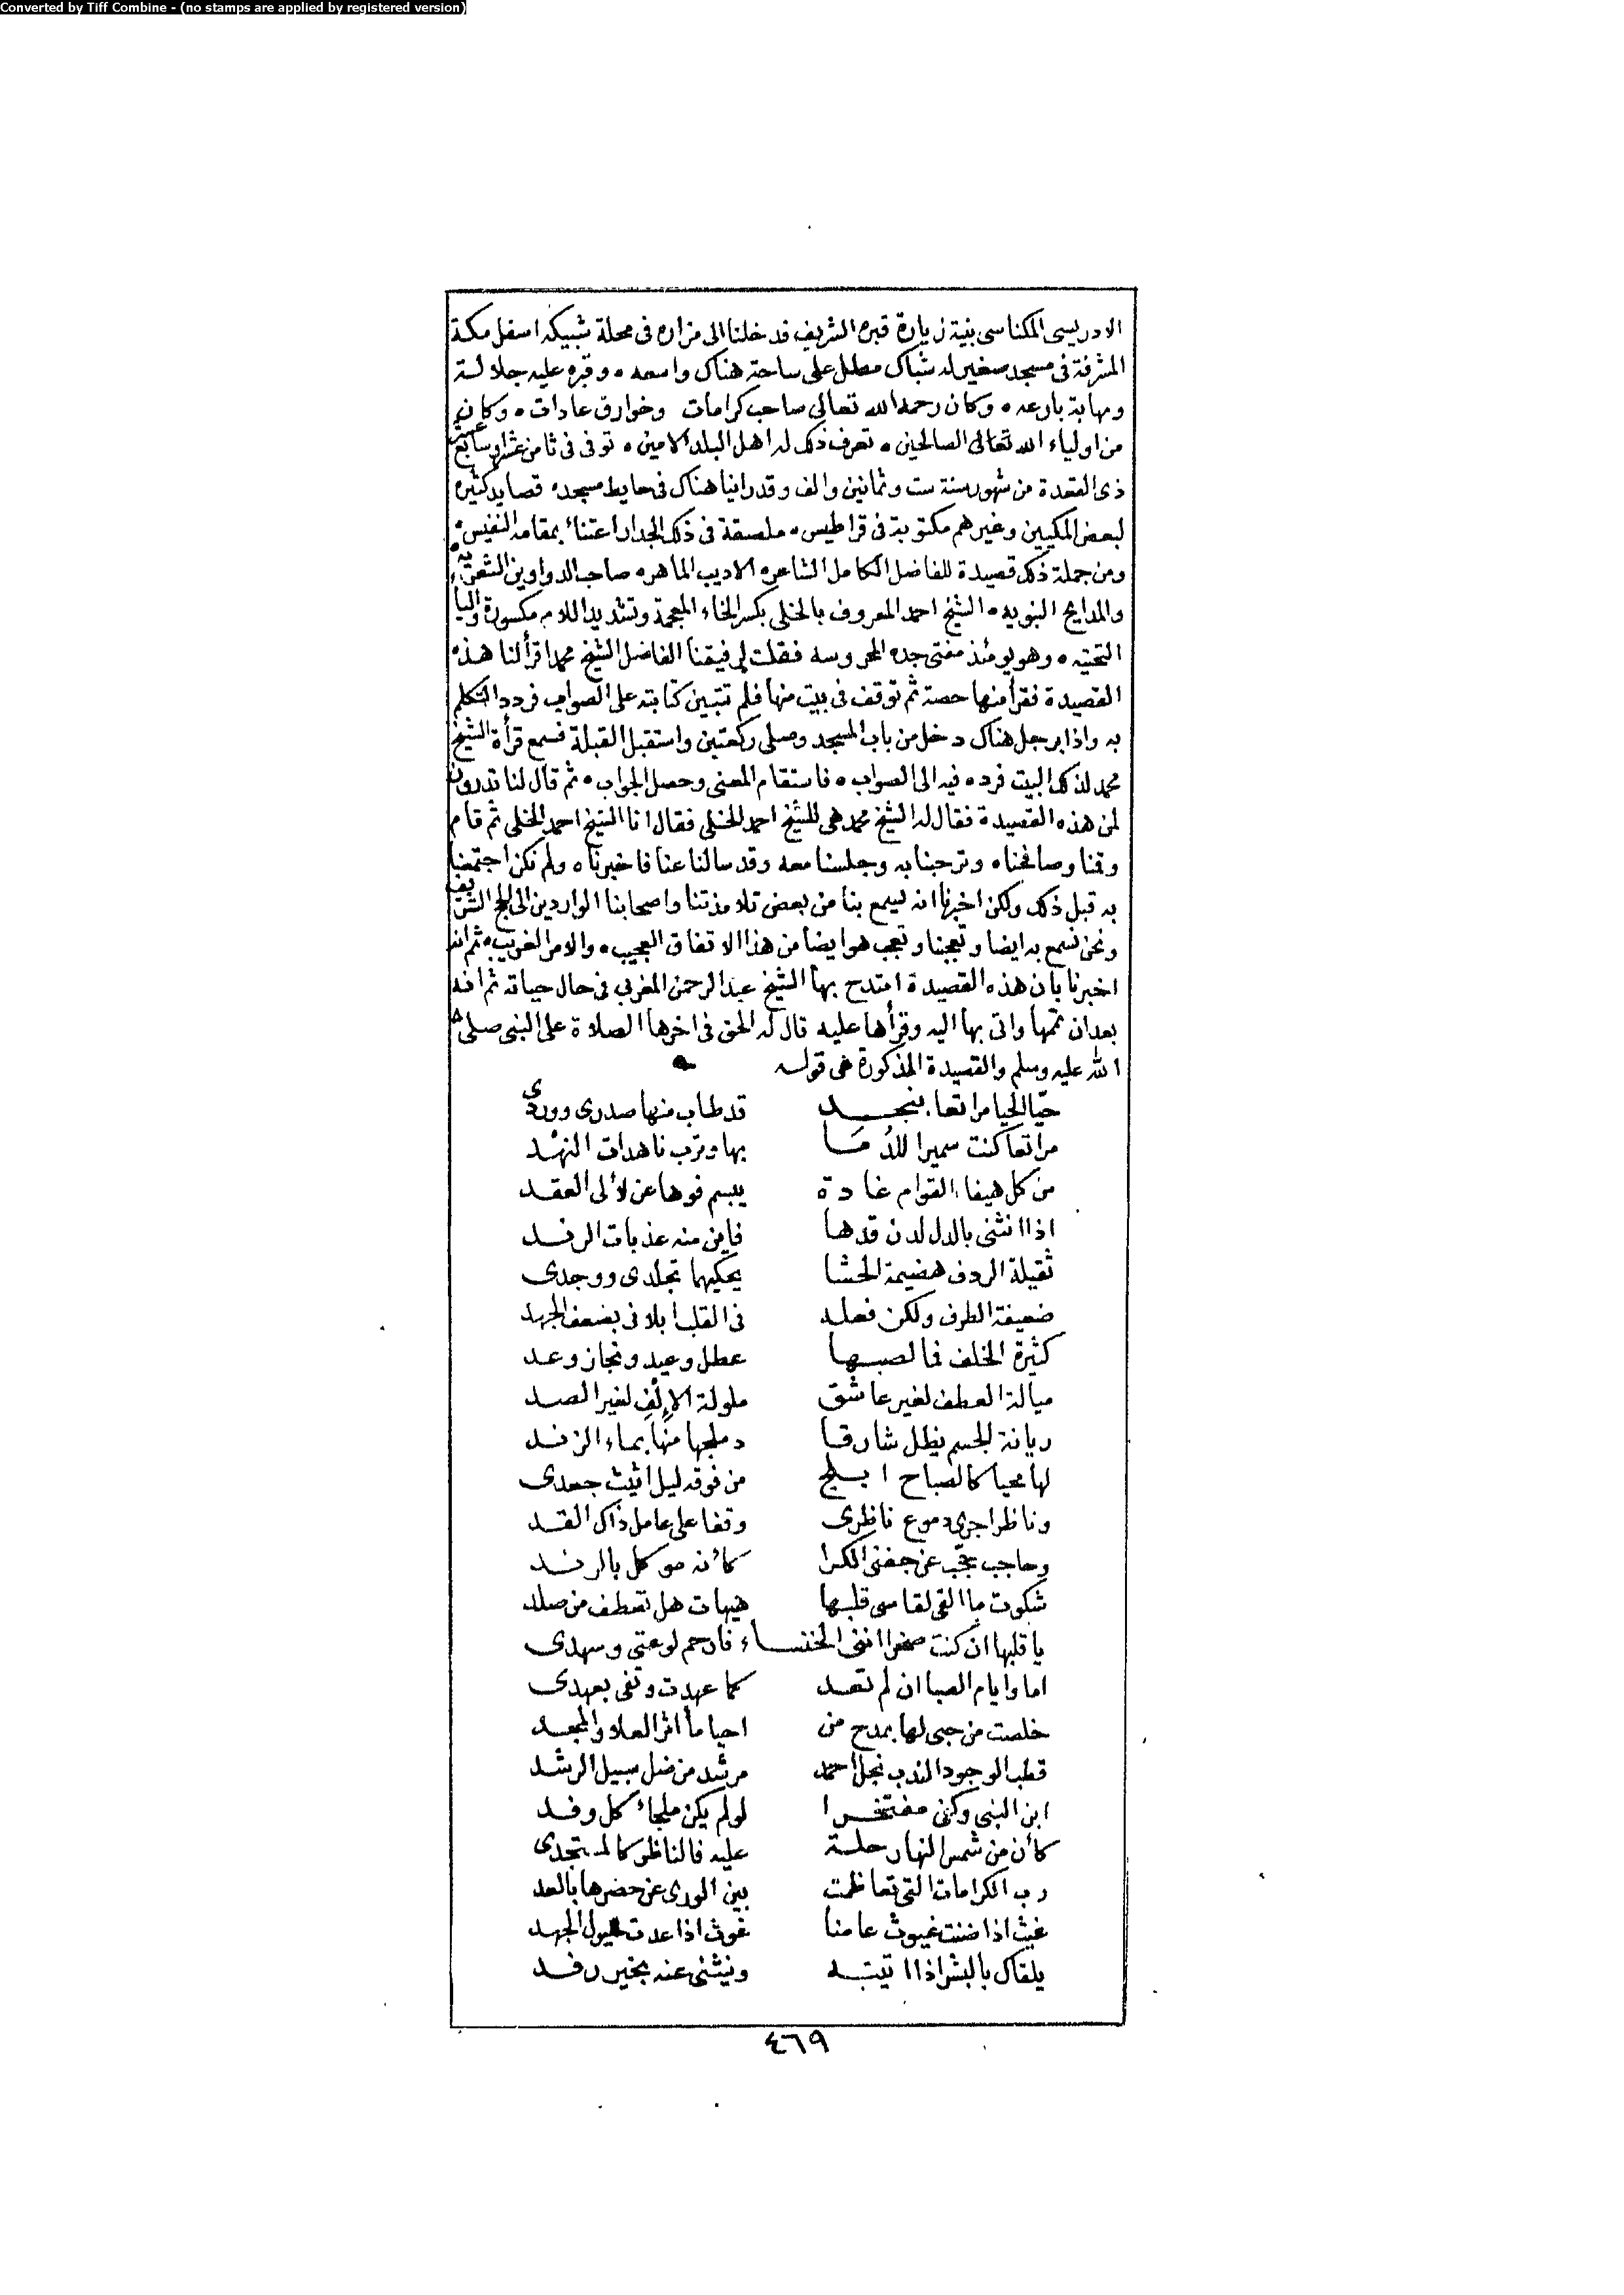 Converted by Tiff Combine - (no stamps are applied by registered version)
الادريسى المكناسى بنية زيارة قبره الشريف فدخلنا الى مزاره فى محلة شبيكه اسفل مكة
المشرفة فى مسجد صغير له شباك مطل على ساحة هناك واسعه ٥ وقبره عليه جلالة
ومهابة بارعه ٥ وكان رحمه الله تعالى صاحب كرامات وخوارق عادات ٥ وكان
من اولياء الله تعالى الصالحين ٥ تعرف ذلك له اهل البلد الامين ٥ توفى فى ثامن عشر او سابع عشر
ذى القعدة من شهور سنة ست وثمانين والف وقد راينا هناك فى حايط مسجده قصايد كثيره
لبعض المكيين وغيرهم مكتوبة فى قراطيس ٥ ملصقة فى ذلك الجدار اعتناءً بمقامه النفيس ٥
ومن جملة ذلك قصيدة للفاضل الكامل الشاعر ٥ الاديب الماهر ٥ صاحب الدواوين الشعريه ٥
والمدايح النبويه ٥ الشيخ احمد المعروف بالخلى بكسر الخاء المعجمة وتشديد اللام مكسورة واليا
التحتيه ٥ وهو يومئذ مفتى جده المحروسه فقلت لرفيقنا الفاضل الشيخ محمد اقرأ لنا هذه
القصيدة فقرأ منها حصة ثم توقف فى بيت منها فلم تتبين كتابته على الصواب فردد التكلم
به واذا برجل هناك دخل من باب المسجد وصلى ركعتين واستقبل القبلة فسمع قرأة الشيخ
محمد لذلك البيت فرده فيه الى الصواب ٥ فاستقام المعنى وحصل الجواب ٥ ثم قال لنا تدرون
لمن هذه القصيدة فقال له الشيخ محمد هى للشيخ احمد الخلى فقال انا الشيخ احمد الخلى ثم قام
وقمنا وصافحناه وترحبنا به وجلسنا معه وقد سالنا عنا فاخبرناه ولم نكن اجتمعنا
به قبل ذلك ولكن اخبرنا انه ليسمع بنا من بعض تلامذتنا واصحابنا الواردين الى الحج الشريف
ونحن نسمع به ايضا وتعجبنا وتعجب هو ايضا من هذا الاتفاق العجيب ٥ والامر الغريب ٥ ثم انه
اخبرنا بان هذه القصيدة امتدح بها الشيخ عبد الرحمن المغربى فى حال حياته ثم انه
بعد ان تممها واتى بها اليه وقرأها عليه قال له الحق فى اخرها الصلاة على النبى صلى
الله عليه وسلم والقصيدة المذكورة هى قوله
حيّا الحيا مراتعا بنجد قد طاب منها صدرى ووردى
مراتعا كنت سميرا للدُمَا بها وترب ناهدات النهْد
من كل هيفاء القوام غادة يبسم فوها عن لألى العقد
اذا انثنى بالدل لدن قدها فاين منه عذبات الرند
ثقيلة الردف هضيمة الحشا يحكيهما تجلدى ووجدى
ضعيفة الطرف ولكن فعله فى القلب ابلانى بضعف الجهد
كثيرة الخلف فما لصبها عطل وعيد ونجاز وعد
ميالة العطف لغير عاشق ملولة الإلْفِ لغير الصد
ريانة الجسم يظل شارقا دملجها منها بماء الزند
لها محيا كالصباح ابلج من فوقه ليل اثيث جعدى
وناظر اجرى دموع ناظرى وقفا على عامل ذاك القد
وحاجب حجّب عن جفنى الكرا كأنه موكل بالرند
شكوت ما القى لقاسى قلبها هيهات هل تعطف من صلد
يا قلبها ان كنت صخرا اننى الخنساء فارحم لوعتى وسهدى
اما وايام الصبا ان لم تعد كما عهدت وتفى بعهدى
خلصت من حبى لها بمدح من احيا مأاثر العلا والمجد
قطب الوجود الندب نجل احمد مرشد من ضل سبيل الرشد
ابن النبى وكفى مفتخرا لو لم يكن ملجاءً كل وفد
كأن من شمس النهار حلة عليه فالناظر كالمستجدى
رب الكرامات التى تعاظمت بين الورى عن حصرها بالعد
غيث اذا ضنت غيوث عامنا غوث اذا عدت خيول الجهد
يلقاك بالبشر اذا اتيته وينثنى عنه بخير رفد
٤٦٩